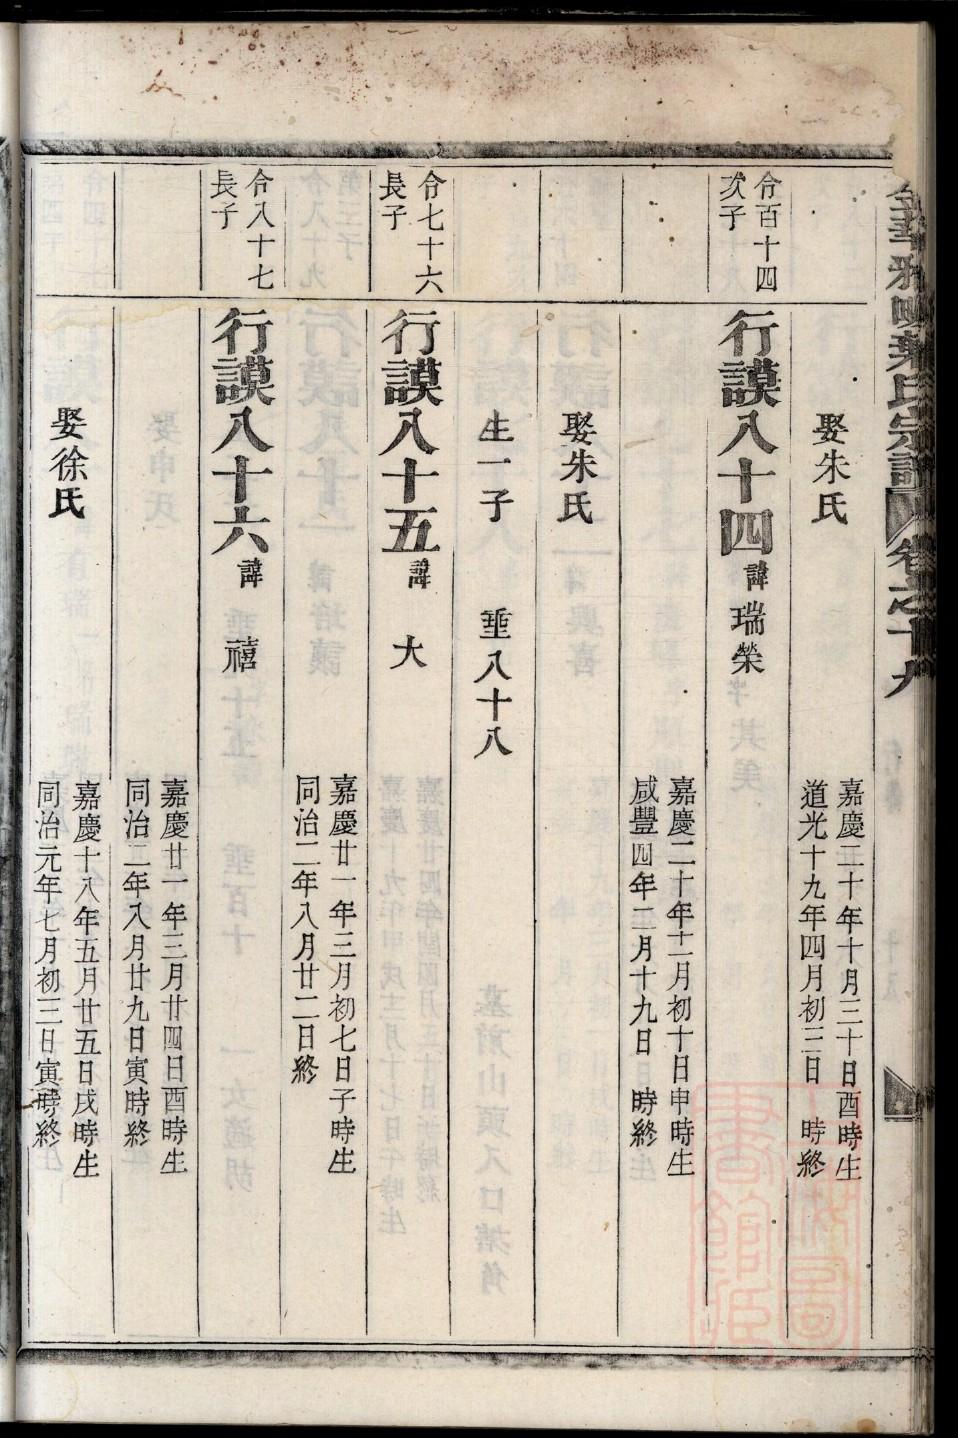 華
葉氏宗譜
卷之十九
娶朱氏
嘉慶二十年十月三十日酉時生
道光十九年四月初三日 時終
令百十四
次子
行謨八十四諱瑞榮
嘉慶二十年十一月初十日申時生
咸豐四年二月十九日 時終
娶朱氏
生一子 埀八十八
令七十六
長子
行謨八十五諱 大
嘉慶廿一年三月初七日子時生
同治二年八月廿二日終
令八十七
長子
行謨八十六諱 禧
嘉慶廿一年三月廿四日酉時生
同治二年八月廿九日寅時終
娶徐氏
嘉慶十八年五月廿五日戌時生
同治元年七月初三日寅時終